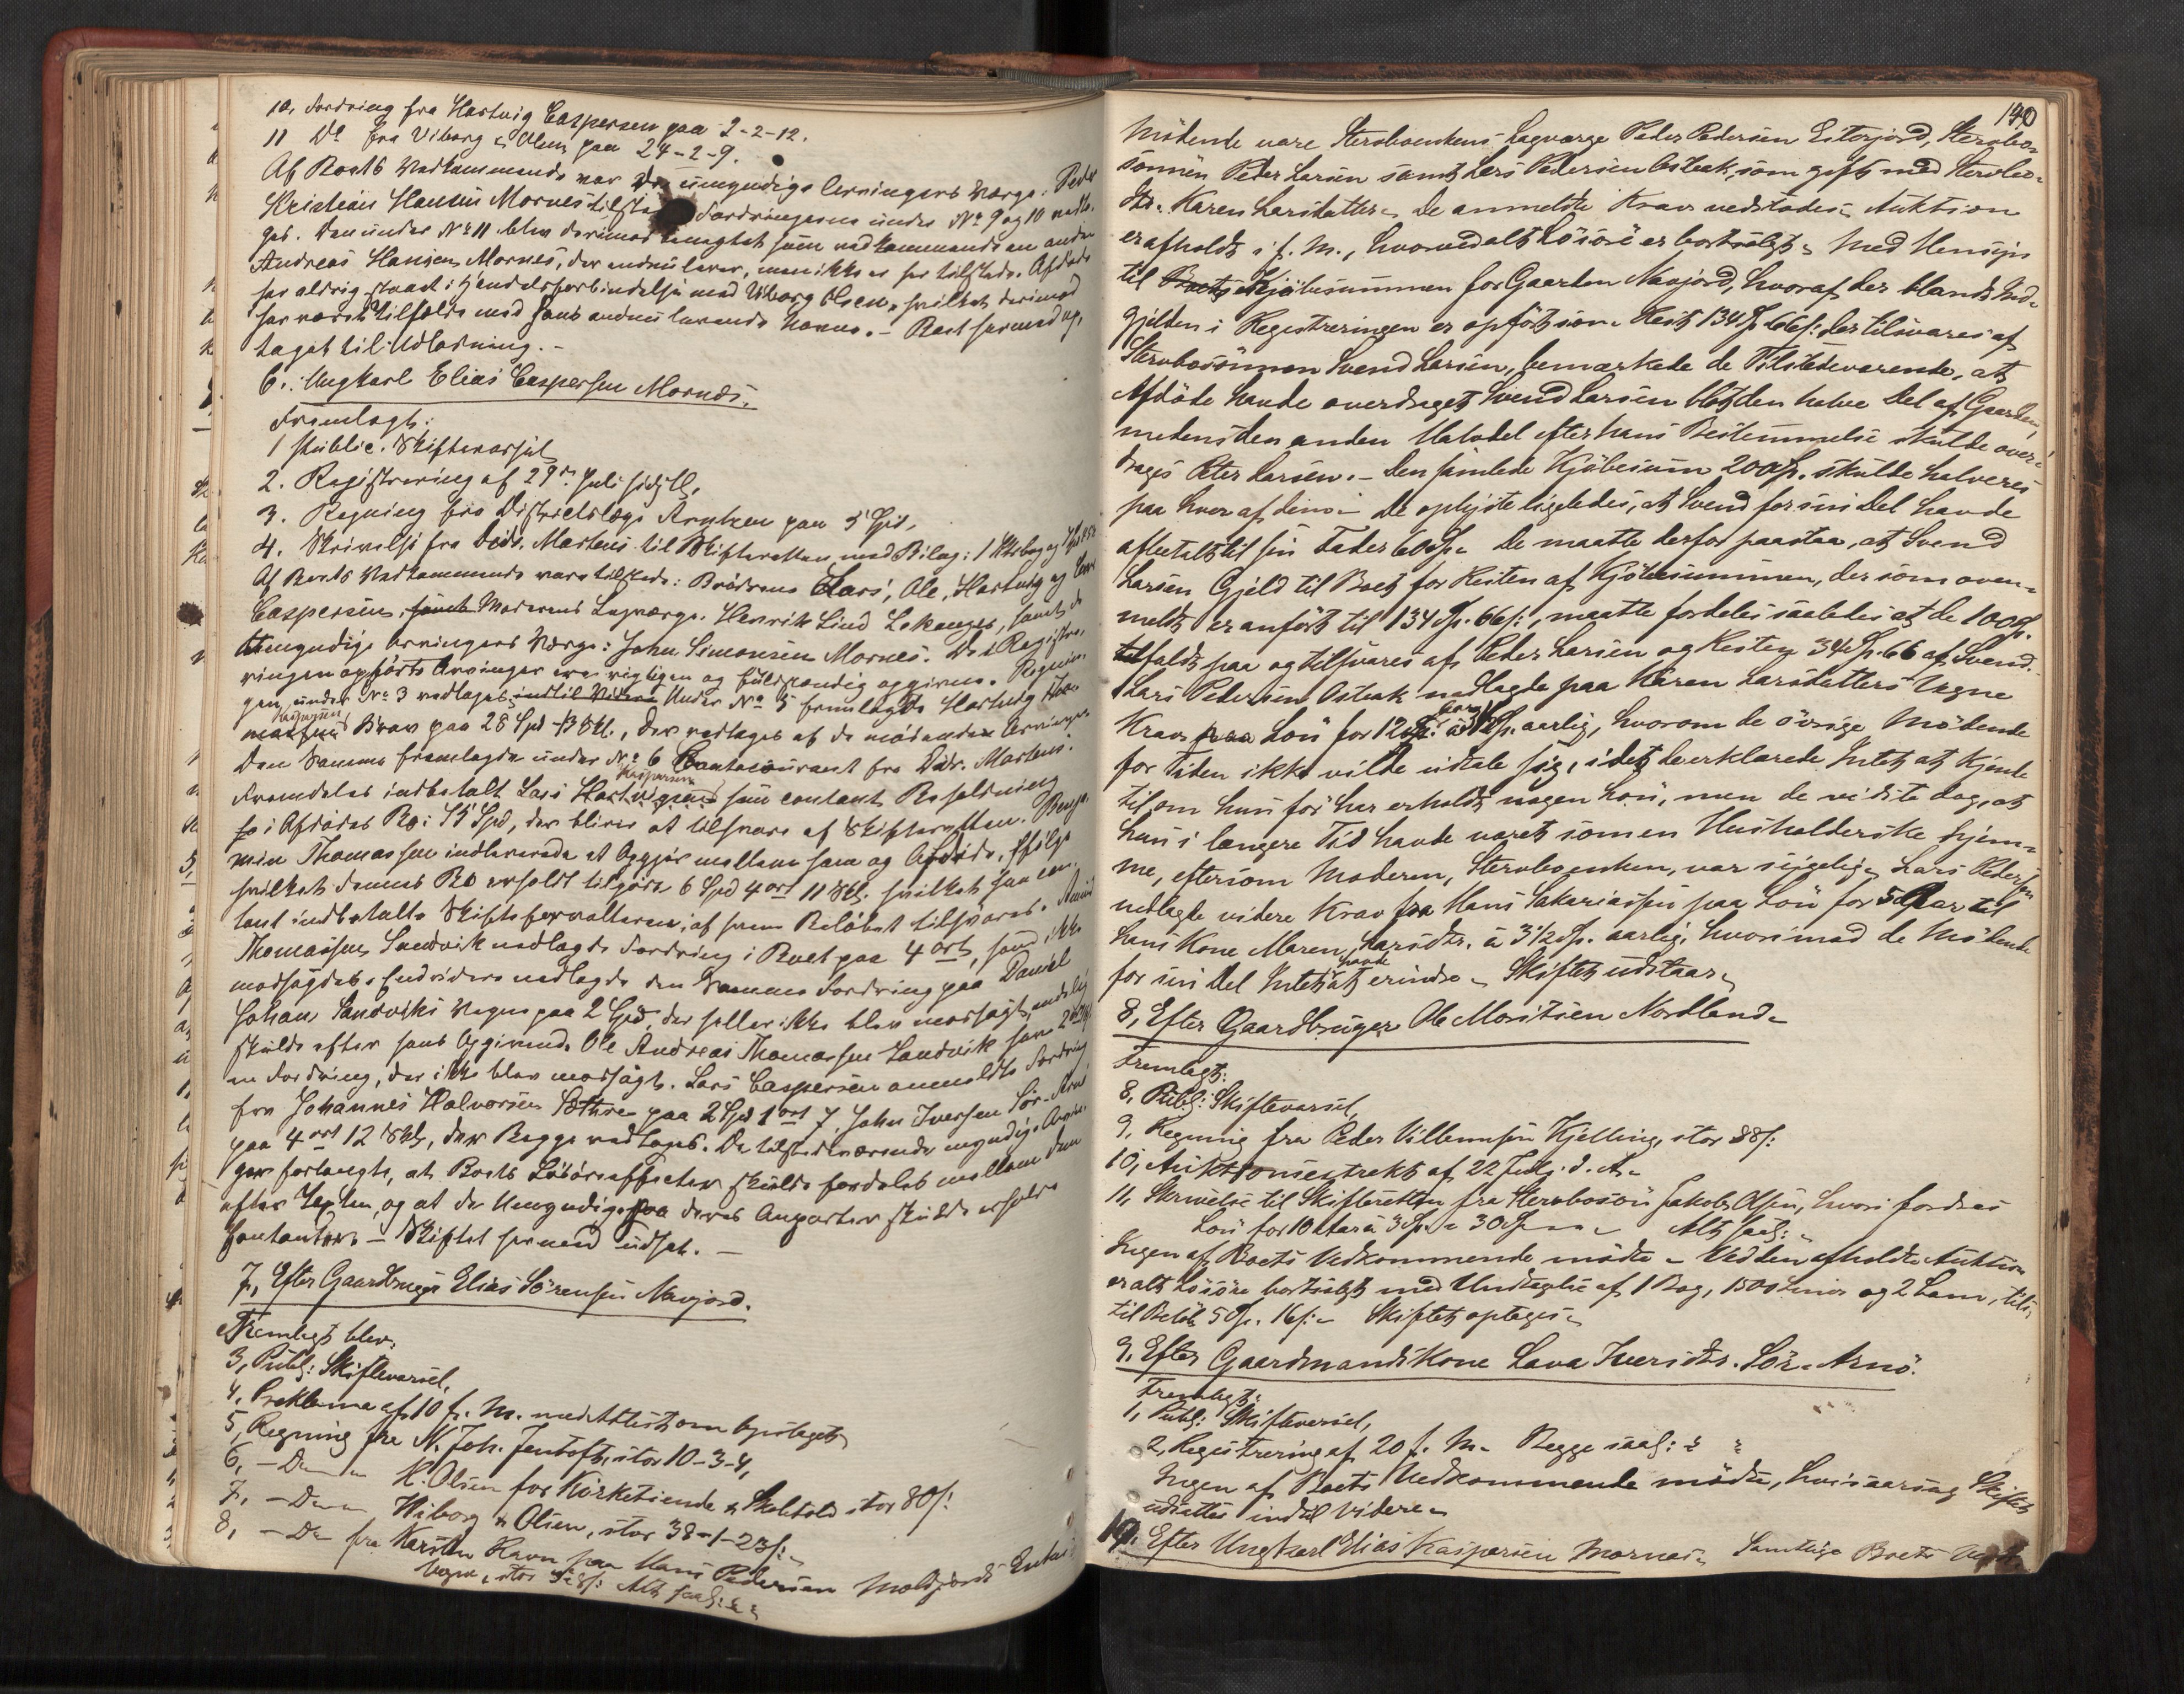 10, Fordring fra Hartvig Caspersen paa 2-2-12.
11 Do fra Viborg & Olsen paa 24-2-9.
Af Boets Vedkommende var De umyndige Arvingers Værge: Peder
Kristian Hansen Mornes tilstede. Fordringerne under No 9 og 10 vedto-
ges. Den under No 11 blev derimod benegtet som vedkommende en anden
Andreas Hansen Mornes, der endnu lever, men ikke er her tilstede. Afdøde
har aldrig staaet i Handelsforbindelse med Viborg Olsen, hvilket derimod
har været Tilfælde med hans endnu levende Navne. - Boet hermed op-
taget til Udlodning. -
6. Ungkarl Elias Caspersen Mornes.
Fremlagt:
1 Public. Skiftevarsel
2. Registrering af 29de Juli sidstl.
3. Regning fra Districtslæge
4. Skrivelse fra Didr. Martens til Skifteretten med Bilag: 1 Ktrabog og
Af Boets Vedkommende vare tilstede: Brødrene Lars, Ole, Hartvig og
Caspersen, samt Moderens Lagværge. Henrik Lind Løkanges, samt de
Umyndige Arvingers Værge: John Simonsen Mornes. De i Registre-
ringen opførte Arvinger ere rigtigen og fuldstændig opgivne. Regnin-
gen under No 3 vedtoges indtil Videre Under No 5 fremlagde Hartvig
Caspersen Krav paa 28 Spd 13 Skl., der vedtoges af de mødende Arvinger
Den Samme fremlagde under No 6 Contocourant fra Didr. Martens.
Fremdeles indbetalt Lars Hartvigsen Kaspersen sin contant Beholdning
fo i Afdødes Bo: 35 Spd, der bliver at tilsvare af Skifteretten. Benja-
min Thomassen indleverede et Opgjør mellem ham og Afdøde, ifølge
hvilket dennes Bo erholdt tilgode 6 Spd 4 ort 11 Skl. hvilket han con-
tant indbetalte Skifteforvalteren, af hvem Beløbet tilsvares.
Thomassen Sandvik nedlagde Fordring i Boet paa 4 ort, som ikke
modsagdes. Endvidere nedlagde den Samme Fordring paa Daniel
Johan Sandviks Vegne paa 2 Spd, der heller ikke blev modsagt, endelig
skulde efter hans Opgivende Ole Andreas Thomassen Sandvik have
en Fordring, der ikke blev modsagt. Lars Caspersen anmeldte Fordring
fra Johannes Halvorsen Sethre paa 2 Spd 1 ort 7. John Iversen Sør-Arnø
paa 4 ort 12 Skl, der Begge vedtoges. De tilstedeværende myndige Arvin-
ger forlangte, at Boets Løsøreeffecter skulde fordeles mellem dem
efter Lexten, og at de Umyndige paa deres Anparter skulde erholde
Contanter. - Skiftet hermed udsat. -
7, Efter Gaardbruger Elias Sörensen Navjord.
Fremlagt blev:
3, Publ: Skiftevarsel,
4, Proklama af 10 f. M. med Attest om Opslaget
5, Regning fra N. Joh. Jentoft, stor 10-3-4,
6, - Do - H. Olsen for Kirketiende & Skoletold stor 80 s:
7, - Do - Wiborg & Olsen, stor 38-1-23 s:
8, - Do fra Karsten Ravn paa Hans Pedersen Moldjords Enkes
Vegne, stor 48 s: Alt saal:

140
Mödende vare Sterboenkens Lagværge Peder Pedersen Eiterjord, Sterbo-
sönnen Peder Larsen samt Lars Pedersen Osbak, som gift med Sterbo-
dtr. Karen Larsdatter. De anmeldte Krav vedtoges. Auktion
er afholdt i f. M., hvorved alt Lösöre er bortsolgt. Med Hensyn
til Boets Kjöbesummen for Gaarden Navjord, hvoraf der blandt Ind-
gjælden i Registreringen er opfört som Rest 134 Sp. 66 s: der tilsvares af
Sterbosönnen Svend Larsen, bemærkede de Tilstedeværende, at
Afdöde havde overdraget Svend Larsen blot den halve Del af Gaarden,
medens den anden Halvdel efter hans Bestemmelse skulde over-
drages Peter Larsen. - Den samlede Kjöbesum 200 Sp. skulde halveres
paa hver af dem. - De oplyste ligeledes, at Svend for sin Del havde
afbetalt til sin Fader 60 Sp. De maatte derfor paastaa, at Svend
Larsens Gjeld til Boet for Resten af Kjöbesummen, der som oven-
meldt er anfört til 134 Sp. 66 s:, maatte fordeles saaledes at de 100 Sp.
tilfaldt paa og tilsvares af Peder Larsen og Resten 34 Sp. 66 af Svend.
Lars Pedersen Osbak nedlagde paa Karen Larsdatters Vegne
Krav paa Lön for 12 Aar à 3 Sp. aarlig, hvorom de övrige Mödende
for Tiden ikke vilde udtale sig, idet de erklærede Intet at kjende
til om hun för har erholdt nogen Lön, men de vidste dog, at
hun i længere Tid havde været som en Husholderske hjem-
me, eftersom Moderen, Sterboenken, var sygelig. Lars Pedersen
nedlagde videre Krav fra Hans Sakariassen paa Lön for 5 Aar til
hans Kone Maren Larsdtr. à 3 1/2 Sp. aarlig, hvorimod de Mödende
for sin Del Intet havde at erindre. Skiftet udstaar.
8, Efter Gaardbruger Ole Moritsen Nordland.
Fremlagt:
8, Publ: Skiftevarsel,
9, Regning fra Peder Villumsen Kjelling, stor 88 s:
10, Auktionsextrakt af 22 Juli d. A.
11, Skrivelse til Skifteretten fra Sterbosön Jakob Olsen, hvori fordres
Lön for 10 Aar à 3 Sp. = 30 Sp. Alt saal:
Ingen af Boets Vedkommende mödte. Ved den afholdte Auktion
er alt Lösöre bortsolgt med Undtagelse af 1 Bog, 1500 Liner og 2 Lam,
til Beløb 5 Sp. 16 s: - Skiftet optages.
9. Efter Gaardmandskone Lava Iversdtr. Sör-Arnö.
Fremlagt:
1, Publ: Skiftevarsel,
2, Registrering af 20 f. M. Begge saal:
Ingen af Boets Vedkommende mödte, hvisaarsag Skiftet
udsattes indtil videre.
10. Efter Ungkarl Elias Kaspersen Mornes. Samtlige Boets